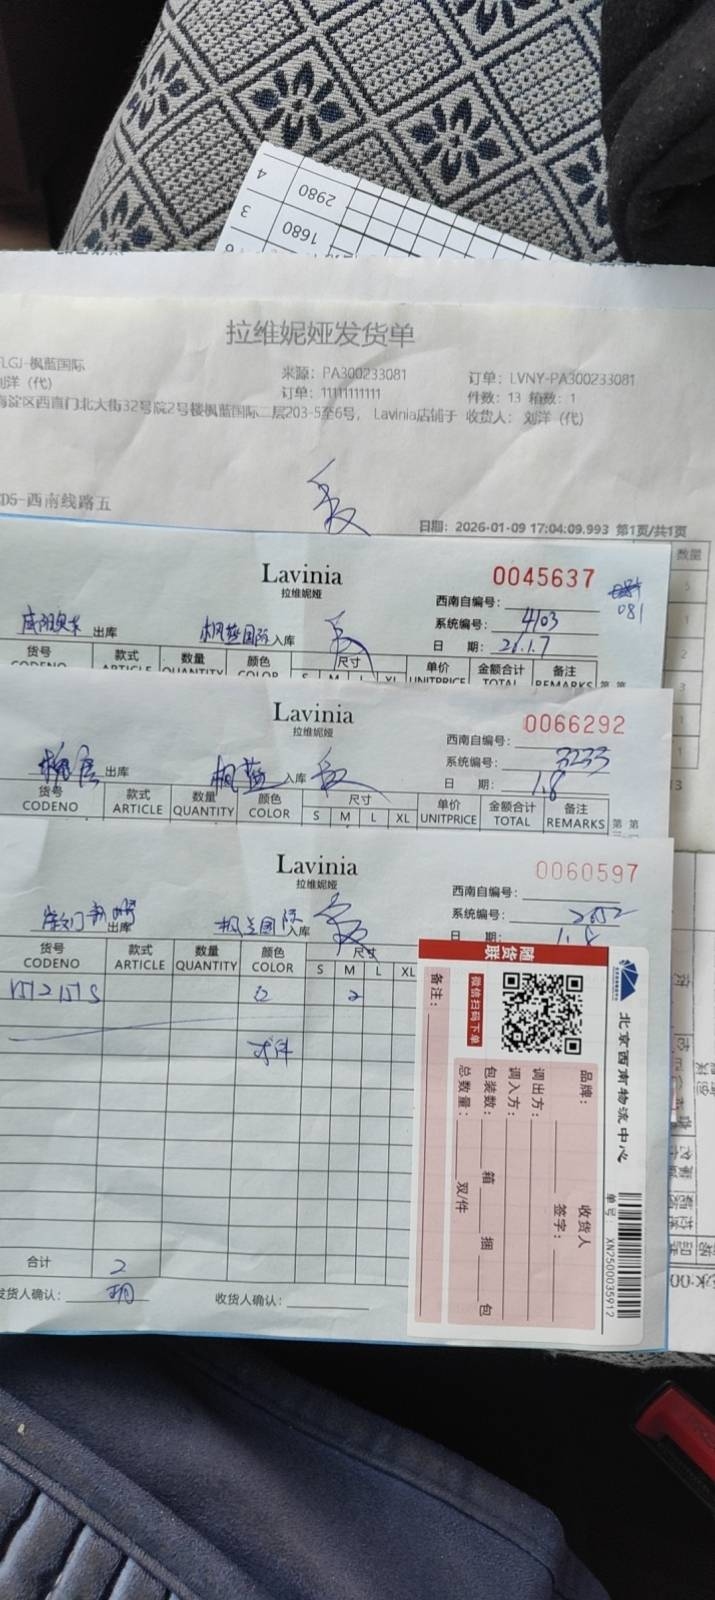 4
2980
3
1680
拉维妮娅发货单
LGJ-枫蓝国际
来源：PA300233081
订单：LVNY-PA300233081
刘洋（代）
订单：11111111111
件数：13 箱数：1
海淀区西直门北大街32号院2号楼枫蓝国际二层203-5至6号， Lavinia店铺于 收货人： 刘洋（代）
D5-西南线路五
日期：2026-01-09 17:04:09.993 第1页/共1页
数量
Lavinia
拉维妮娅
0045637
西南自编号：
081
系统编号：4103
出库 枫蓝国际 入库
日 期：26.1.7
货号 款式 数量 颜色 尺寸 单价 金额合计 备注
CODENO ARTICLE QUANTITY COLOR S M L XL UNITPRICE TOTAL REMARKS
Lavinia
拉维妮娅
0066292
西南自编号：
系统编号：3233
出库 枫蓝 入库
日 期：1.8
货号 款式 数量 颜色 尺寸 单价 金额合计 备注
CODENO ARTICLE QUANTITY COLOR S M L XL UNITPRICE TOTAL REMARKS
Lavinia
拉维妮娅
0060597
西南自编号：
系统编号：
出库 枫兰国际 入库
日 期：
货号 款式 数量 颜色 尺寸
CODENO ARTICLE QUANTITY COLOR S M L XL
2
合计 2
发货人确认： 收货人确认：
随货联
北京西南物流中心
微信扫码下单
单号： XN2500035912
品牌：
收货人
签字：
调出方：
调入方：
包装数： 箱 捆 包
总数量： 双/件
备注：